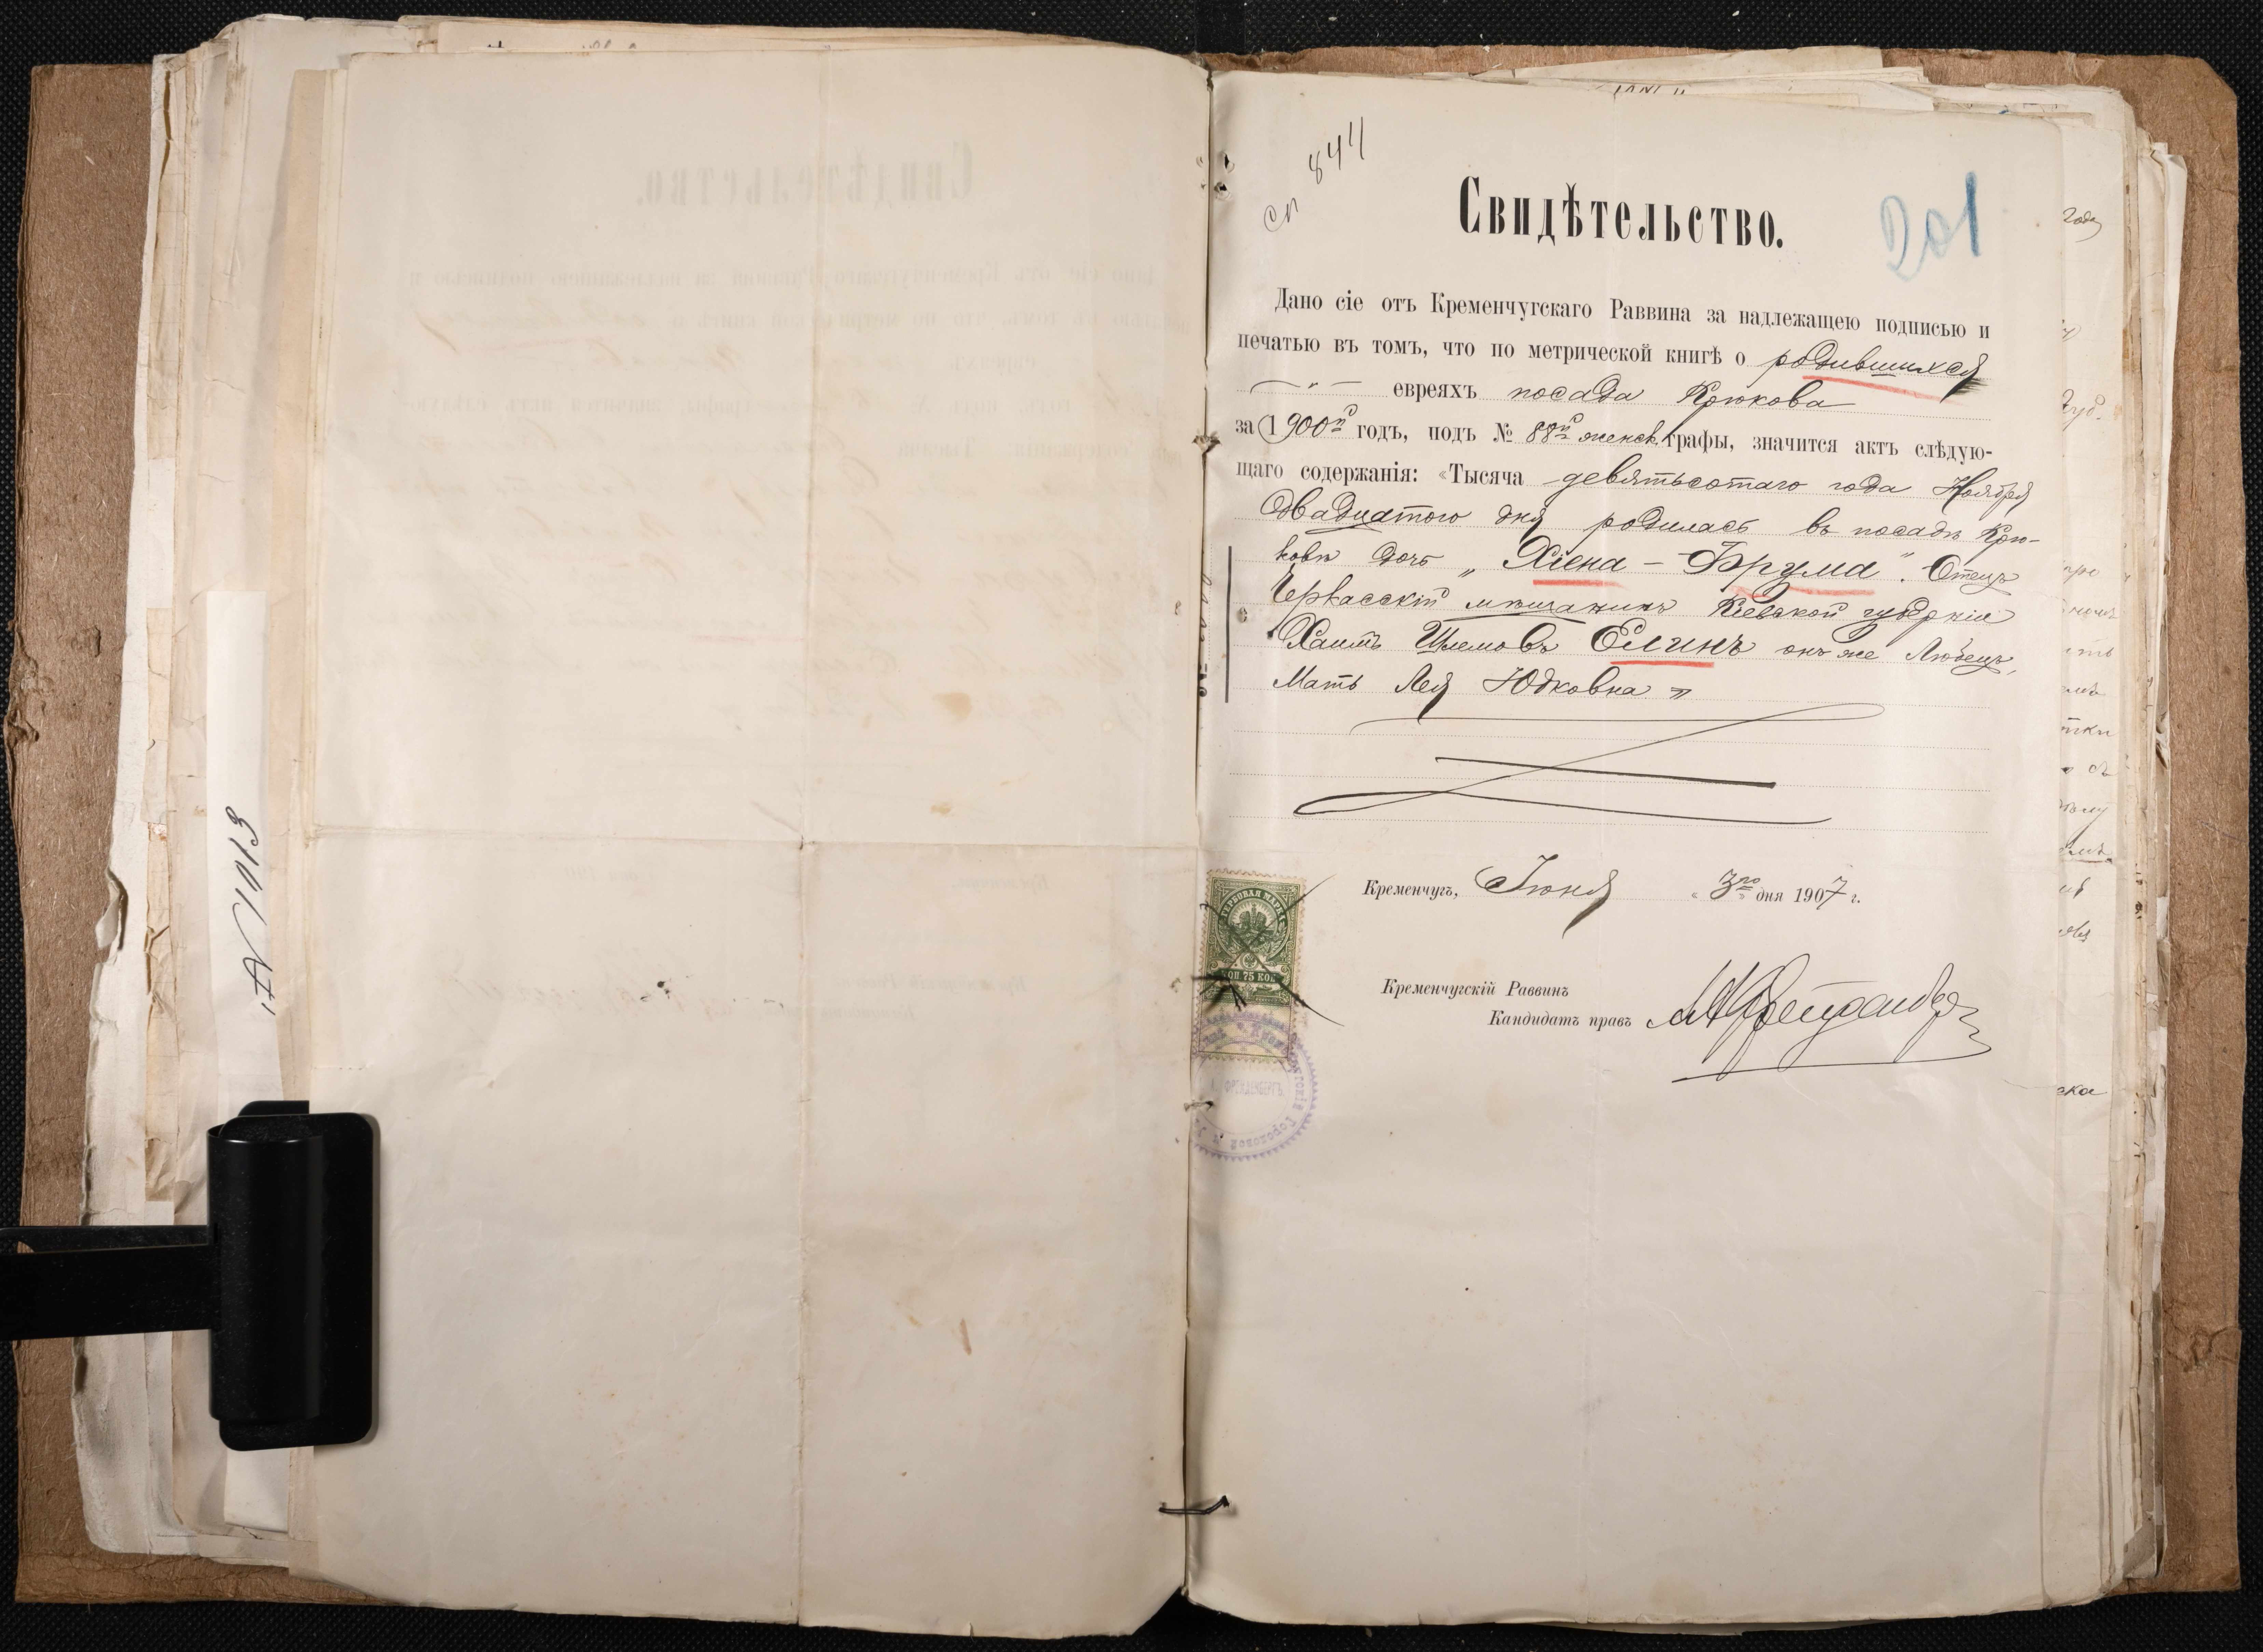 № 1013
сп 844
Свидѣтельство.
201
Дано сіе отъ Кременчугскаго Раввина за надлежащею подписью и
печатью въ томъ, что по метрической книгѣ о родившихся
— " — евреяхъ посада Крюкова
за 1900й годъ, подъ № 88й женск. графы, значится актъ слѣдую-
щаго содержанія: «Тысяча девятьсотаго года Ноября
двадцатого дня родилась въ посадѣ Крю-
ковѣ дочь „Хіена - Фрума". Отецъ
Черкасскій мѣщанинъ Кіевской губерніи
Хаимъ Шлемовъ Елинъ онъ же Любецъ,
Мать Лея Юдковна "
Кременчугъ, Іюня „3го" дня 1907 г.
ГЕРБОВАЯ МАРКА
КОП. 75 КОП.
Кременчугскій Раввинъ
Кандидатъ правъ